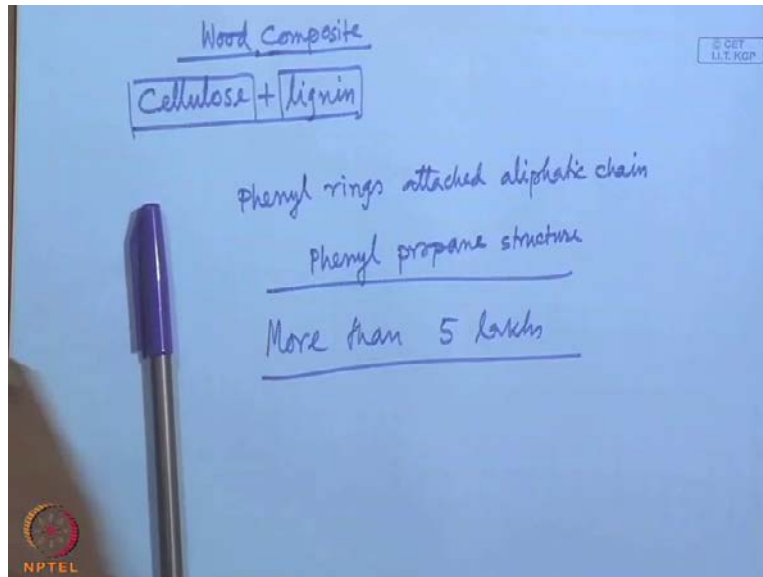 Wood Composite
© CET
I.I.T. KGP
Cellulose + lignin
Phenyl rings attached aliphatic chain
Phenyl propane structure
More than 5 lakhs
NPTEL